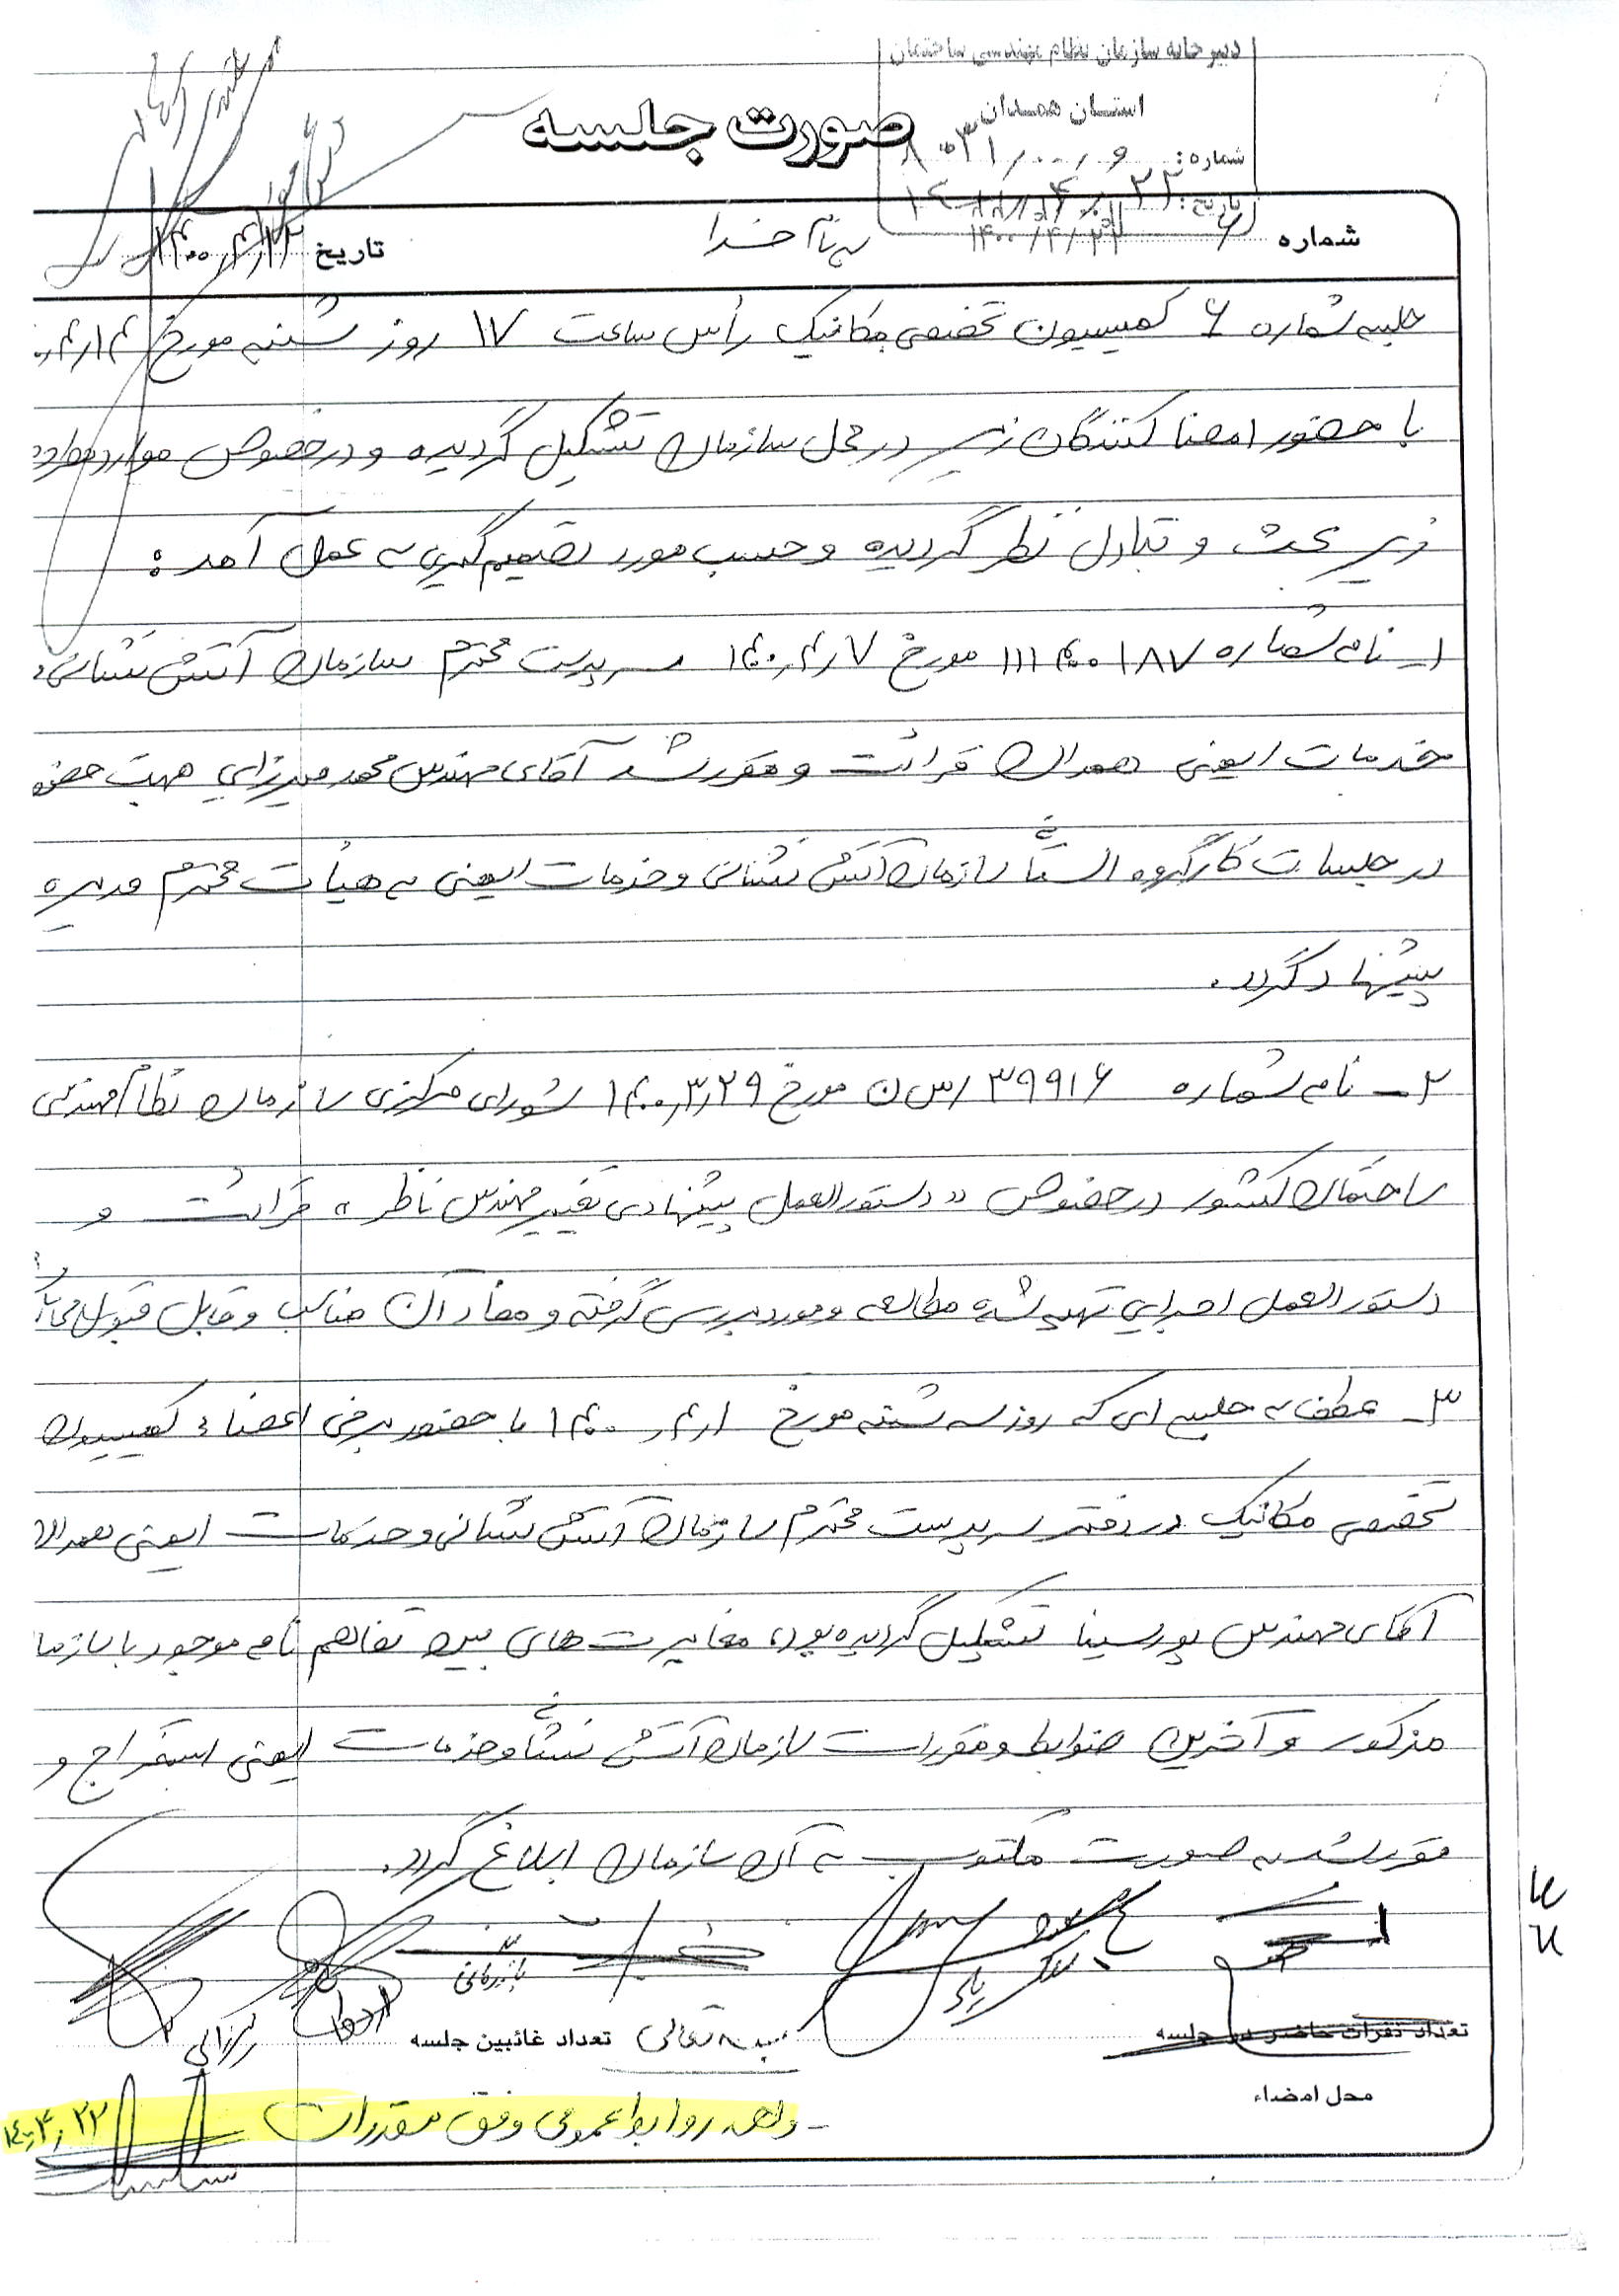 دبیرخانه سازمان نظام مهندسی ساختمان
استان همدان
شماره:
تاریخ:
صورت جلسه
شماره ۶
به نام خدا
تاریخ
جلسه شماره ۶ کمیسیون تخصصی مکانیک رأس ساعت ۱۷ روز شنبه مورخ
با حضور امضا کنندگان زیر در محل سازمان تشکیل گردیده و در خصوص موارد
زیر بحث و تبادل نظر گردیده و حسب مورد تصمیم گیری به عمل آمد:
۱- نامه شماره ۱۱۱۴۰۰۱۸۷ مورخ ۱۴۰۰,۴,۷ سرپرست محترم سازمان آتش نشانی و
خدمات ایمنی همدان قرائت و مقرر شد آقای مهندس محمد میرزایی جهت حضور
در جلسات کارگروه سازمان آتش نشانی و خدمات ایمنی به هیأت محترم مدیره
پیشنهاد گردد.
۲- نامه شماره ۳۹۹۱۶/س ن مورخ ۱۴۰۰,۳,۲۹ شورای مرکزی سازمان نظام مهندسی
ساختمان کشور در خصوص «دستورالعمل پیشنهادی تغییر مهندس ناظر» قرائت و
دستورالعمل اجرایی تهیه شده مطالعه و مورد بررسی گرفته و مفاد آن مناسب و قابل قبول
۳- عطف به جلسه ای که روز سه شنبه مورخ ۱۴۰۰,۴,۱ با حضور برخی اعضاء کمیسیون
تخصصی مکانیک در دفتر سرپرست محترم سازمان آتش نشانی و خدمات ایمنی همدان
آقای مهندس پورسینا تشکیل گردیده بود، مغایرت های بین تفاهم نامه موجود با سازمان
مذکور و آخرین ضوابط و مقررات سازمان آتش نشانی و خدمات ایمنی استخراج و
مقرر شد به صورت مکتوب به آن سازمان ابلاغ گردد.
تعداد نفرات حاضر در جلسه
تعداد غائبین جلسه
بسمه تعالی
محل امضاء
- واحد روابط عمومی وفق مقررات